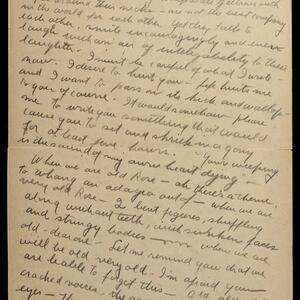 around their necks — are not the best company
in the world for each other. Yet they talk to
each other, smile encouragingly and even
laugh with an air of intensity to their
laughter. I must be careful of what I write —
now. I desire to hurt you — life hurts me
and I want to pass on its kick and wallop —
to you of course. It would somehow please
me to write you something that would
cause you to sit and shriek in agony
for at least five hours. Your weeping
is the sound of my own heart dying —
When we are old Rose — ah there's a theme
to whang an adagio out of — when we are
very old Rose — 2 bent figures, shuffling
along without teeth, with sunken faces
and stringy bodies — when we are
old — dear one — Let me remind you that we
will be old, very old. I'm afraid you
are liable to forget this — Old age
cracked voices,
eyes —